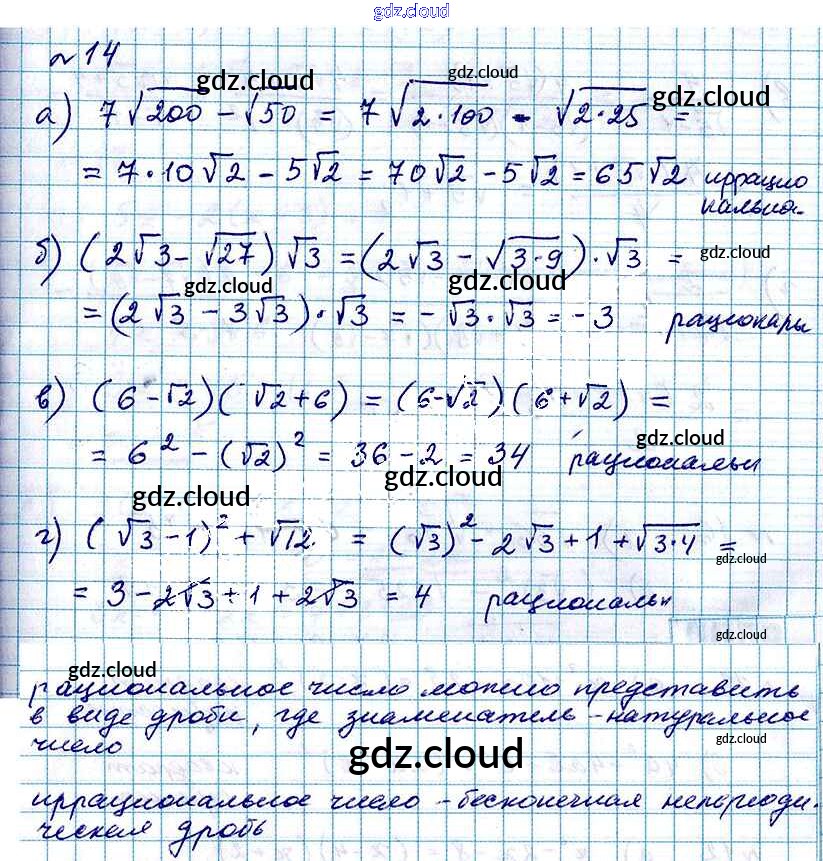 gdz.cloud
№ 14
gdz.cloud gdz.cloud gdz.cloud
а) 7√200 - √50 = 7√2·100 - √2·25 =
= 7·10√2 - 5√2 = 70√2 - 5√2 = 65√2 иррацио
нальна.
б) (2√3 - √27) √3 = (2√3 - √3·9)·√3 = gdz.cloud
gdz.cloud gdz.cloud
= (2√3 - 3√3)·√3 = -√3·√3 = -3 рационары
в) (6-√2)(√2+6) = (6-√2)(6+√2) =
gdz.cloud
= 6² - (√2)² = 36 - 2 = 34 рациональн
gdz.cloud gdz.cloud
г) (√3-1)² + √12 = (√3)² - 2√3 + 1 + √3·4 =
gdz.cloud
= 3 - 2√3 + 1 + 2√3 = 4 рациональн
gdz.cloud
gdz.cloud
рациональное число можно представить
в виде дроби, где знаменатель - натуральное
число gdz.cloud
gdz.cloud
иррациональное число - бесконечная непериоди-
ческая дробь